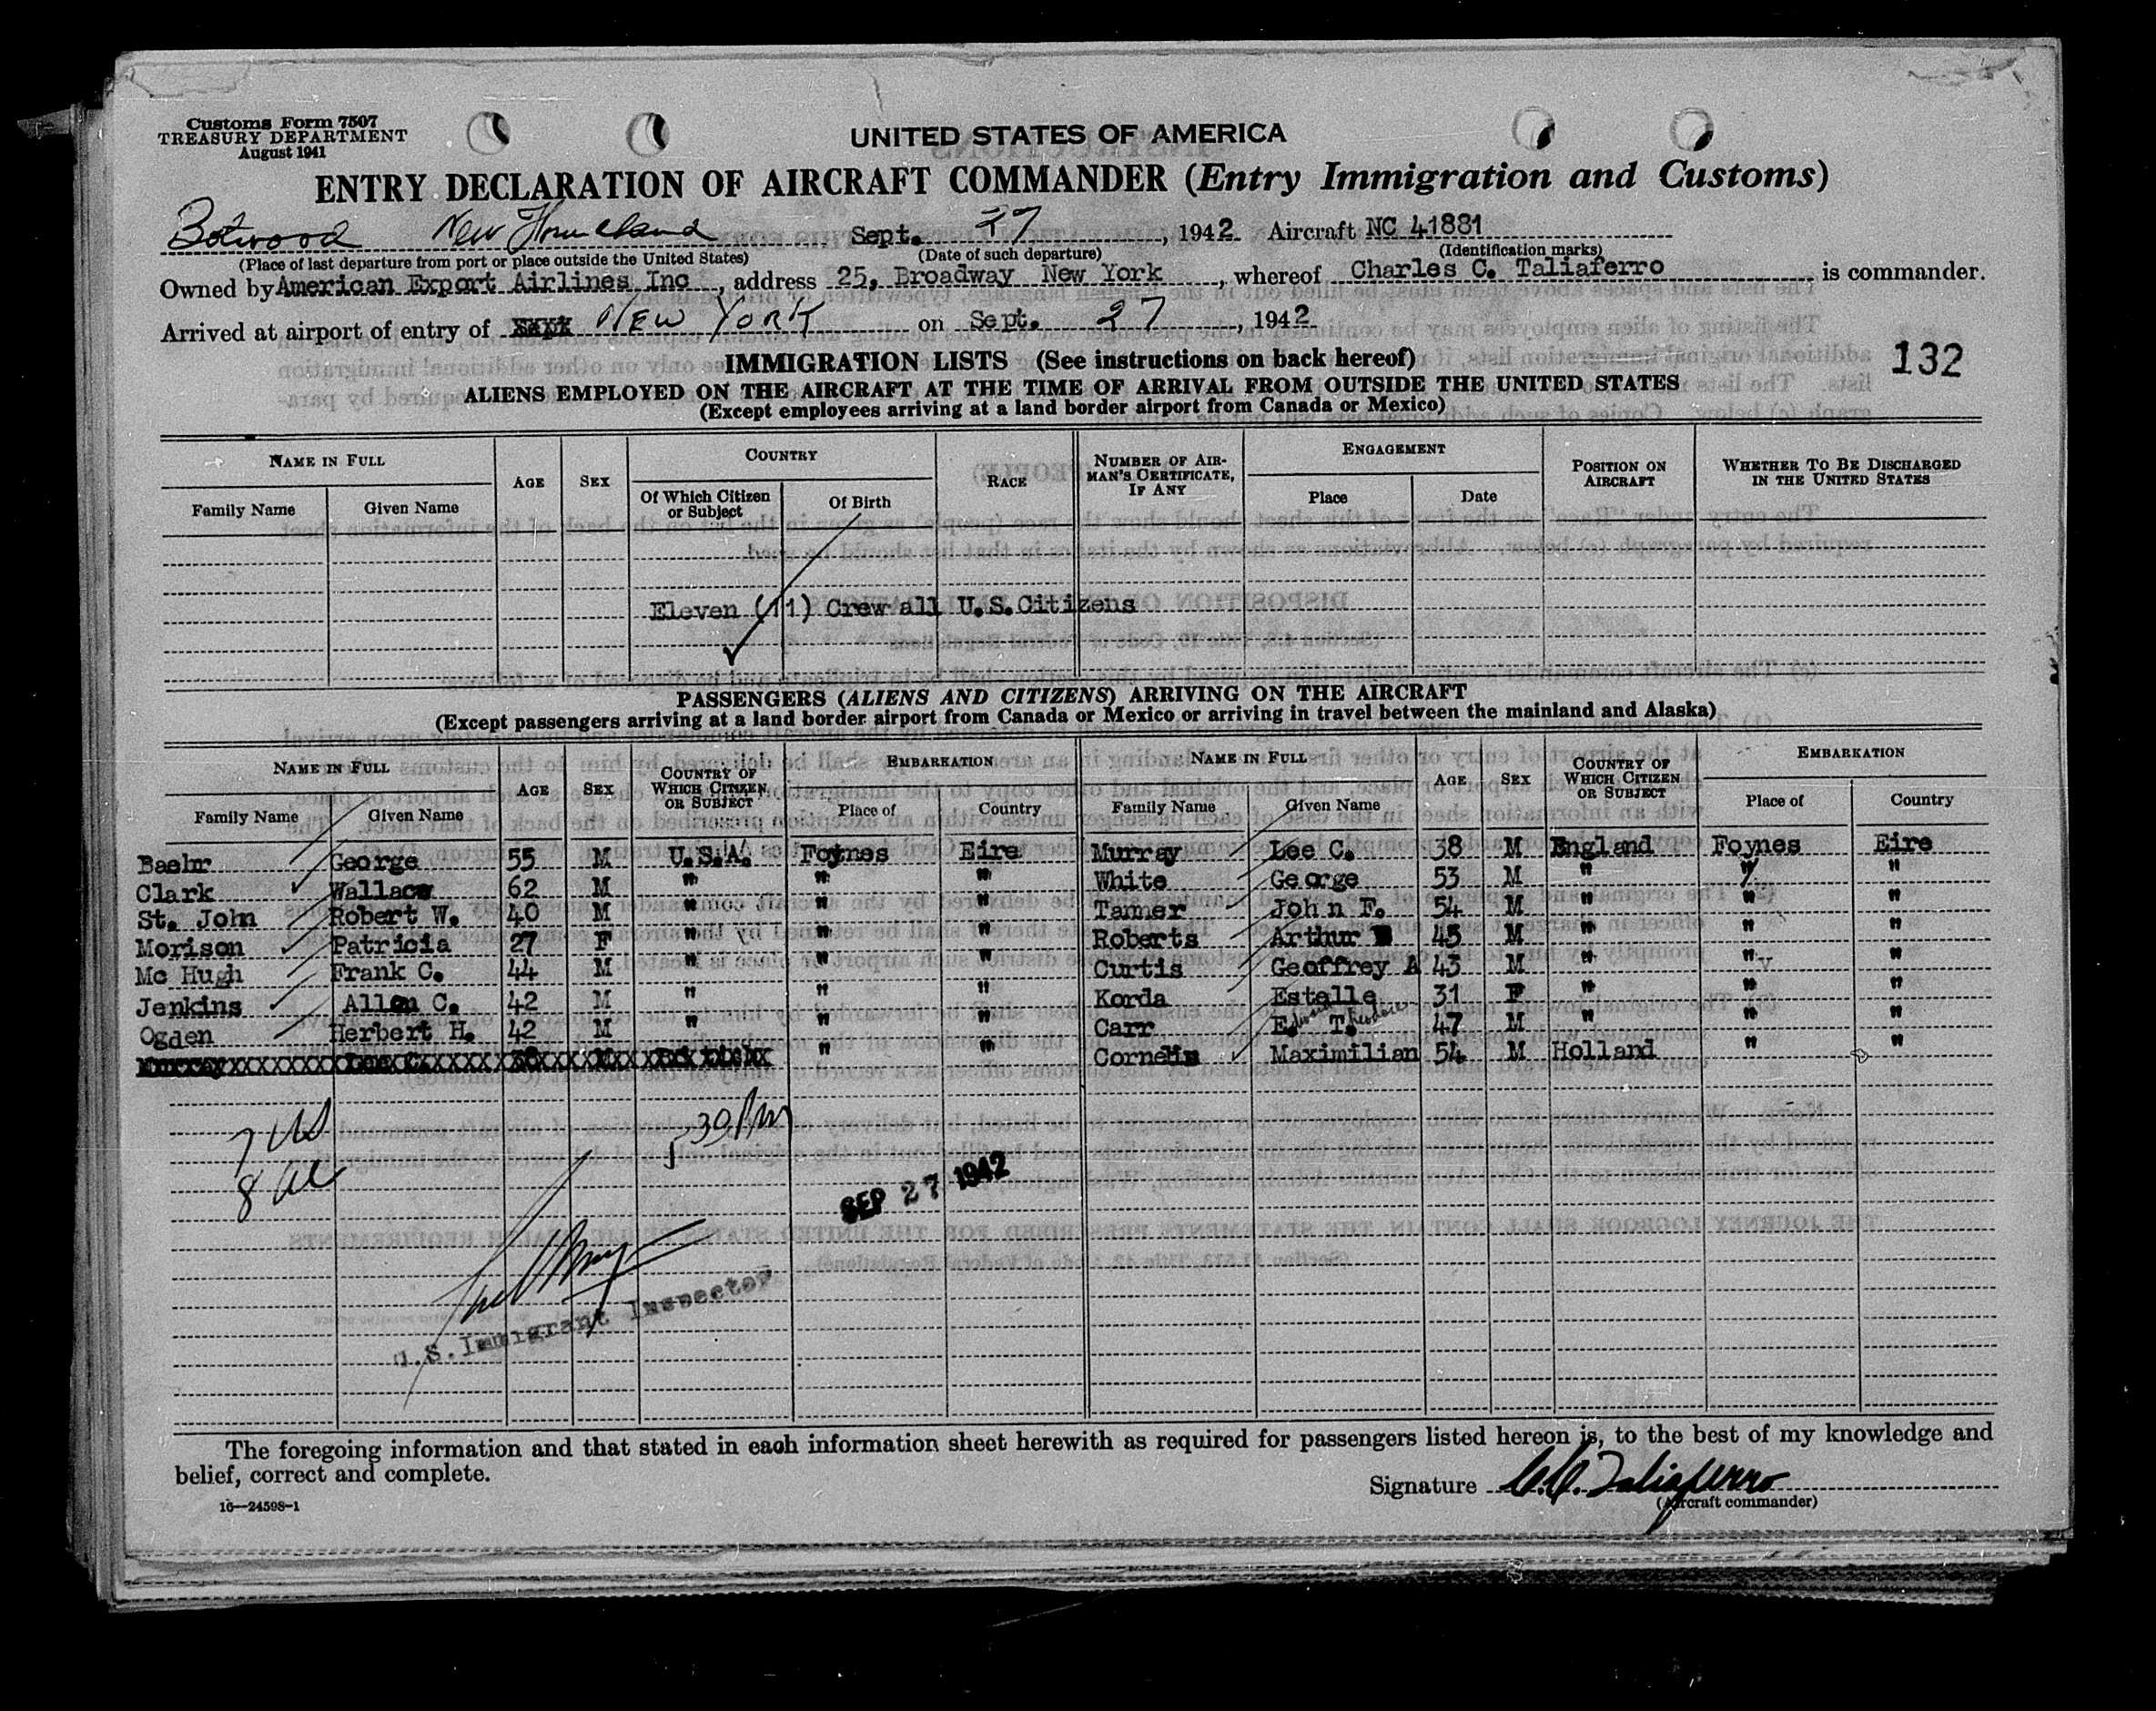 Customs Form 7507
TREASURY DEPARTMENT
August 1941
UNITED STATES OF AMERICA
ENTRY DECLARATION OF AIRCRAFT COMMANDER (Entry Immigration and Customs)
Botwood New Foundland Sept. 27, 1942 Aircraft NC 41881
(Place of last departure from port or place outside the United States) (Date of such departure) (Identification marks)
Owned by American Export Airlines Inc, address 25, Broadway New York, whereof Charles C. Taliaferro is commander.
Arrived at airport of entry of NEW YORK on Sept. 27, 1942
132
IMMIGRATION LISTS (See instructions on back hereof)
ALIENS EMPLOYED ON THE AIRCRAFT AT THE TIME OF ARRIVAL FROM OUTSIDE THE UNITED STATES
(Except employees arriving at a land border airport from Canada or Mexico)
NAME IN FULL AGE SEX COUNTRY RACE NUMBER OF AIRMAN'S CERTIFICATE, IF ANY ENGAGEMENT POSITION ON AIRCRAFT WHETHER TO BE DISCHARGED IN THE UNITED STATES
Family Name Given Name Of Which Citizen or Subject Of Birth Place Date
Eleven (11) Crew all U.S.Citizens
PASSENGERS (ALIENS AND CITIZENS) ARRIVING ON THE AIRCRAFT
(Except passengers arriving at a land border airport from Canada or Mexico or arriving in travel between the mainland and Alaska)
NAME IN FULL AGE SEX COUNTRY OF WHICH CITIZEN OR SUBJECT EMBARKATION NAME IN FULL AGE SEX COUNTRY OF WHICH CITIZEN OR SUBJECT EMBARKATION
Family Name Given Name Place of Country Family Name Given Name Place of Country
Baehr George 55 M U.S.A. Foynes Eire Murray Lee C. 38 M England Foynes Eire
Clark Wallace 62 M " " " White George 53 M " " "
St. John Robert W. 40 M " " " Tamer John F. 54 M " " "
Morison Patricia 27 F " " " Roberts Arthur 45 M " " "
Mc Hugh Frank C. 44 M " " " Curtis Geoffrey A 43 M " " "
Jenkins Allen C. 42 M " " " Korda Estelle 31 F " " "
Ogden Herbert H. 42 M " " " Carr E. T. 47 M " " "
Murray Lee C. 38 M British " " Cornelis Maximilian 54 M Holland " "
7 US
8 al
5 30 Pm
SEP 27 1942
U.S. Immigrant Inspector
The foregoing information and that stated in each information sheet herewith as required for passengers listed hereon is, to the best of my knowledge and
belief, correct and complete.
Signature C.C. Taliaferro
(Aircraft commander)
16—24598-1